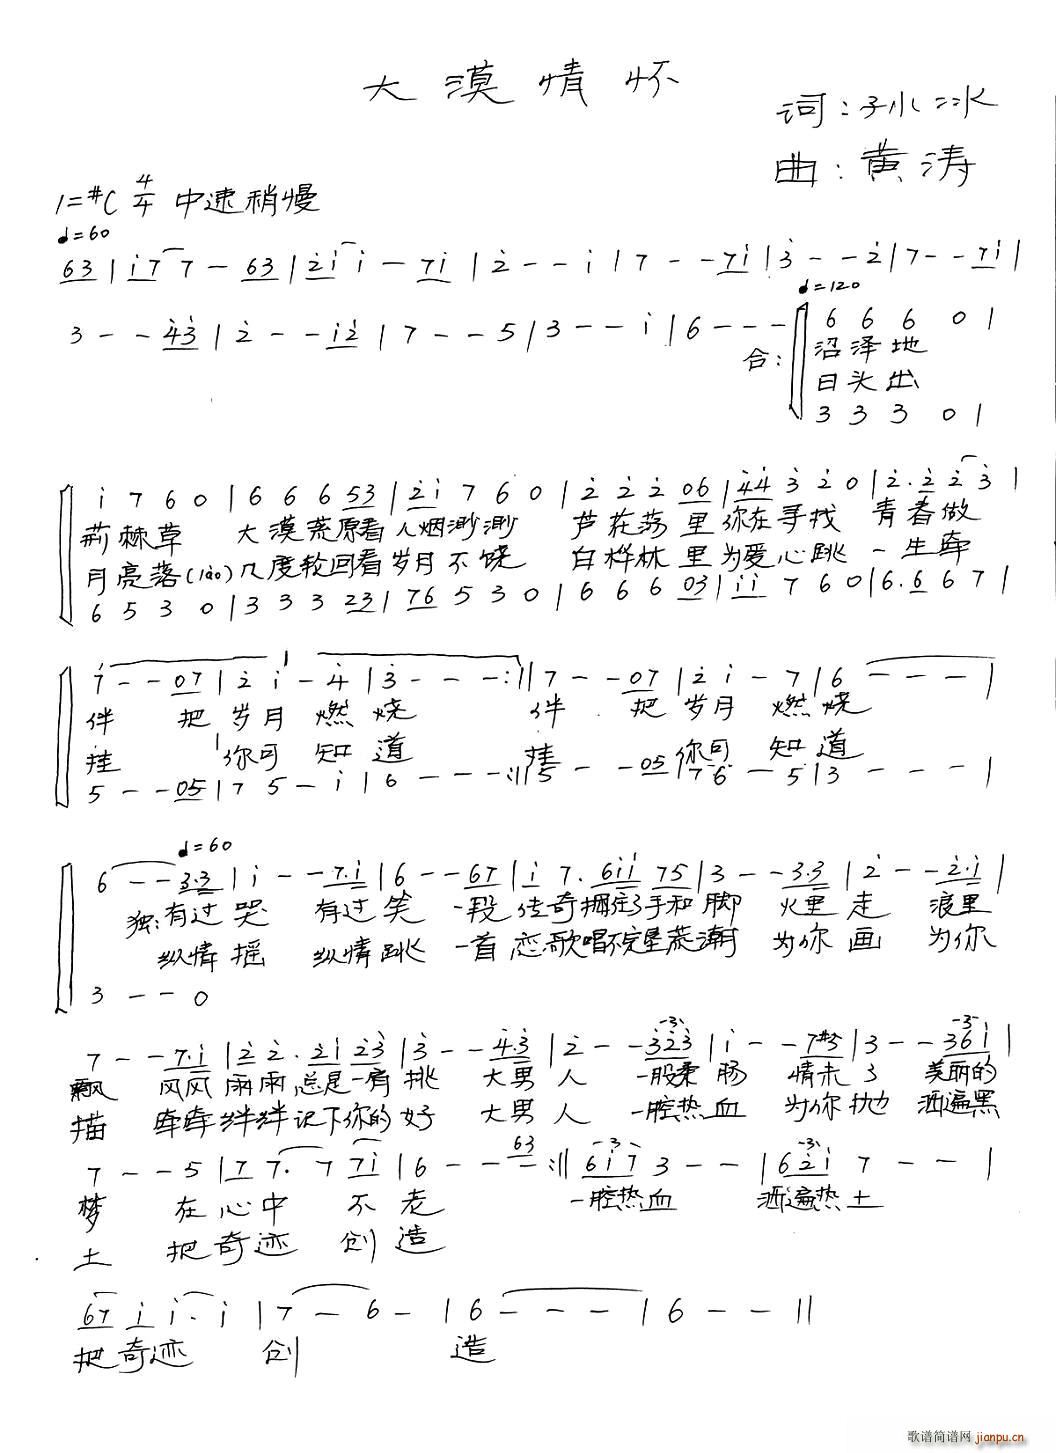 大漠情怀
词：孙冰冰
曲：黄涛
1=#C 4/4 中速稍慢
♩=60
63 | i7 7 — 63 | 2i i — 7i | 2 - - i | 7 - - 7i | 3 - - 2 | 7 - - 7i |
♩=120
3 - - 43 | 2 - - i2 | 7 - - 5 | 3 - - i | 6 - - - 6 6 6 0 |
合： 沼泽地
日头出
3 3 3 0 |
i 7 6 0 | 6 6 6 53 | 2i 7 6 0 | 2 2 2 06 | 44 3 2 0 | 2. 2 2 3 |
荊棘草 大漠荒原看人烟渺渺 芦花荡里你在寻找 青春做
月亮落(180)几度轮回看岁月不饶 白桦林里为爱心跳 一生牵
6 5 3 0 | 3 3 3 23 | 76 5 3 0 | 6 6 6 03 | ii 7 6 0 | 6. 6 6 7 |
7 - - 07 | 2 i - 4 | 3 - - - :|| 7 - - 07 | 2 i - 7 | 6 - - - |
伴 把岁月燃烧 伴 把岁月燃烧
挂 你可知道 挂 你可知道
5 - - 05 | 7 5 - i | 6 - - - :|| 5 - - 05 | 7 6 - 5 | 3 - - - |
♩=60
6 - - 3.3 | i - - 7.i | 6 - - 67 | i 7. 6ii 75 | 3 - - 3.3 | 2 - - 2.i |
独：有过哭 有过笑 一段传奇捆住了手和脚 火里走 浪里
纵情摇 纵情跳 一首恋歌唱不完星荒潮 为你画 为你
3 - - 0
7 - - 7.i | 2 2. 2i 23 | 3 - - 4.3 | 2 - - 323 | i - - 7#5 | 3 - - 36i |
飘 风风雨雨总是一肩挑 大男人 一股柔肠 情未了 美丽的
描 牵牵绊绊记下你的好 大男人 一腔热血 为你抛 洒遍黑
7 - - 5 | 7 7. 7 7i | 6 - - - 63 :|| 6i7 3 - - | 62i 7 - - |
梦 在心中 不老 一腔热血 洒遍热土
土 把奇迹 创造
67 i i. i | 7 - 6 - | 6 - - - | 6 - - ||
把奇迹 创 造
歌谱简谱网 jianpu.cn